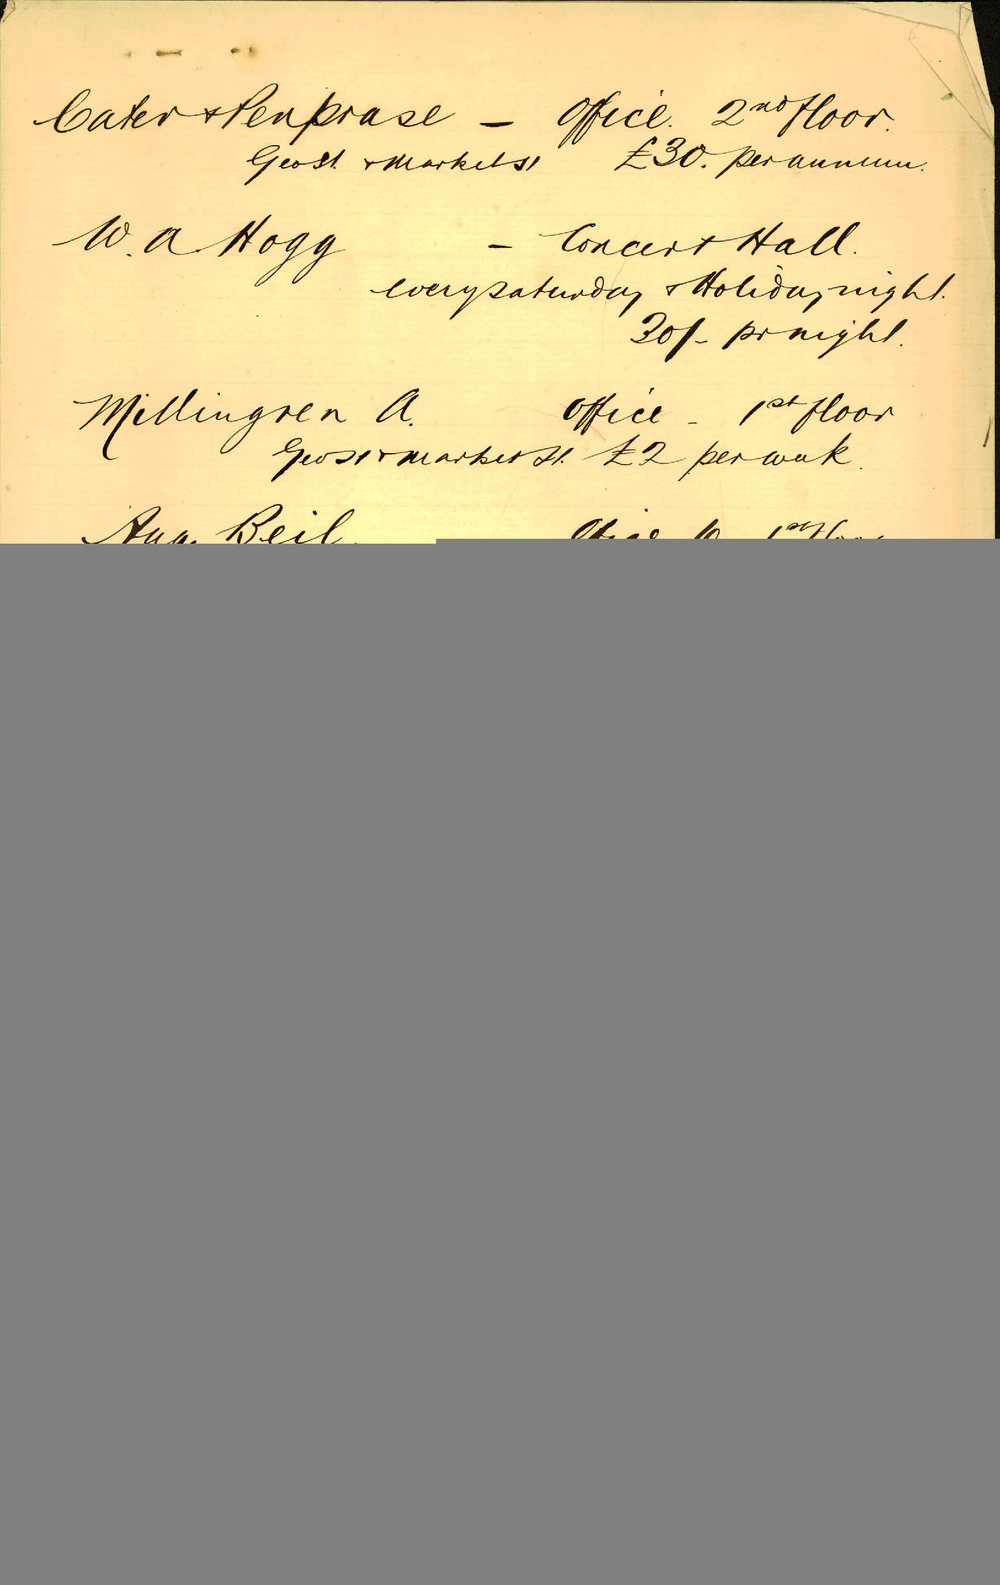 Cater & Penprase - Office. 2nd floor.
Geo St. & Market St £30. per annum.
W. A. Hogg - Concert Hall.
every Saturday & Holiday night.
30/- pr night.
Millingren A. Office - 1st floor
Geo St & Market St. £2 per week.
Aug. Beil. Office 1st floor